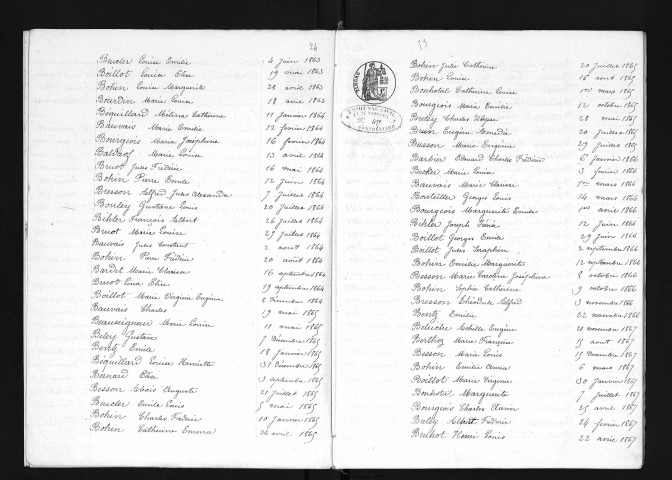 24
Beucler Louise Emilie 4 juin 1863
Boillot Louis Elie 19 mai 1863
Bohin Louise Marguerite 28 avril 1863
Bourdin Marie Louise 18 avril 1863
Béquillard Catherine 11 janvier 1864
Bauvais Marie Emilie 12 février 1864
Bourgeois Marie Joséphine 16 février 1864
Marie Louise 13 avril 1864
Bruot Jules Frédéric 16 mai 1864
Bohin Pierre Emile 12 juin 1864
Bresson Alfred Jules Alexandre 7 juillet 1864
Bouley Gustave Louis 20 juillet 1864
Bihler François Albert 26 juillet 1864
Bruot Marie Louise 29 juillet 1864
Bauvais Jules Constant 2 août 1864
Bohin Pierre Frédéric 20 août 1864
Bardet Marie Clarisse 16 septembre 1864
Bruot Elise 19 septembre 1864
Boillot Marie Virginie Eugénie 2 Décembre 1864
Bauvais Charles 19 mai 1865
Beauseigneur Marie Louise 11 mai 1865
Gustave 7 Décembre 1865
Bentz Emile 18 janvier 1865
Béquillard Louise Henriette 31 Décembre 1865
Bernard Elise 3 septembre 1865
Besson Auguste 21 juillet 1865
Beucler Emile Louis 5 mai 1865
Bohin Charles Frédéric 10 janvier 1865
Bohin Catherine Emma 26 avril 1865
13
Bohin Julie Catherine 20 juillet 1865
Bohin Louise 16 août 1865
Bonhotal Catherine Louise 1er mars 1865
Bourgeois Marie Emilie 12 octobre 1865
Charles Ulysse 28 mai 1865
Eugène Amédée 20 juillet 1865
Busson Marie Eugénie 29 juillet 1865
Barbier Edouard Charles Frédéric 6 janvier 1866
Becker Marie Louise 3 février 1866
Bauvais Marie 1er mars 1866
Bouteiller Georges Louis 24 mars 1866
Bourgeois Marguerite Emilie 1er avril 1866
Bihler Joseph 12 juin 1866
Boillot Georges Emile 29 juin 1866
Boillot Jules Séraphin 2 septembre 1866
Bohin Emilie Marguerite 12 septembre 1866
Besson Marie Caroline Joséphine 8 octobre 1866
Bohin Sophie Catherine 9 octobre 1866
Bresson Théodule Alfred 13 novembre 1866
Bentz Emilie 22 novembre 1866
Beluche Achille Eugène 21 novembre 1867
Berthoz Marie François 15 août 1867
Besson Marie Louis 15 Décembre 1867
Bohin Emilie Anna 6 mars 1867
Boillot Marie Virginie 30 janvier 1867
Bonhotal Marguerite 7 juillet 1867
Bourgeois Charles Xavier 25 avril 1867
Albert Frédéric 24 février 1867
Henri Louis 22 avril 1867